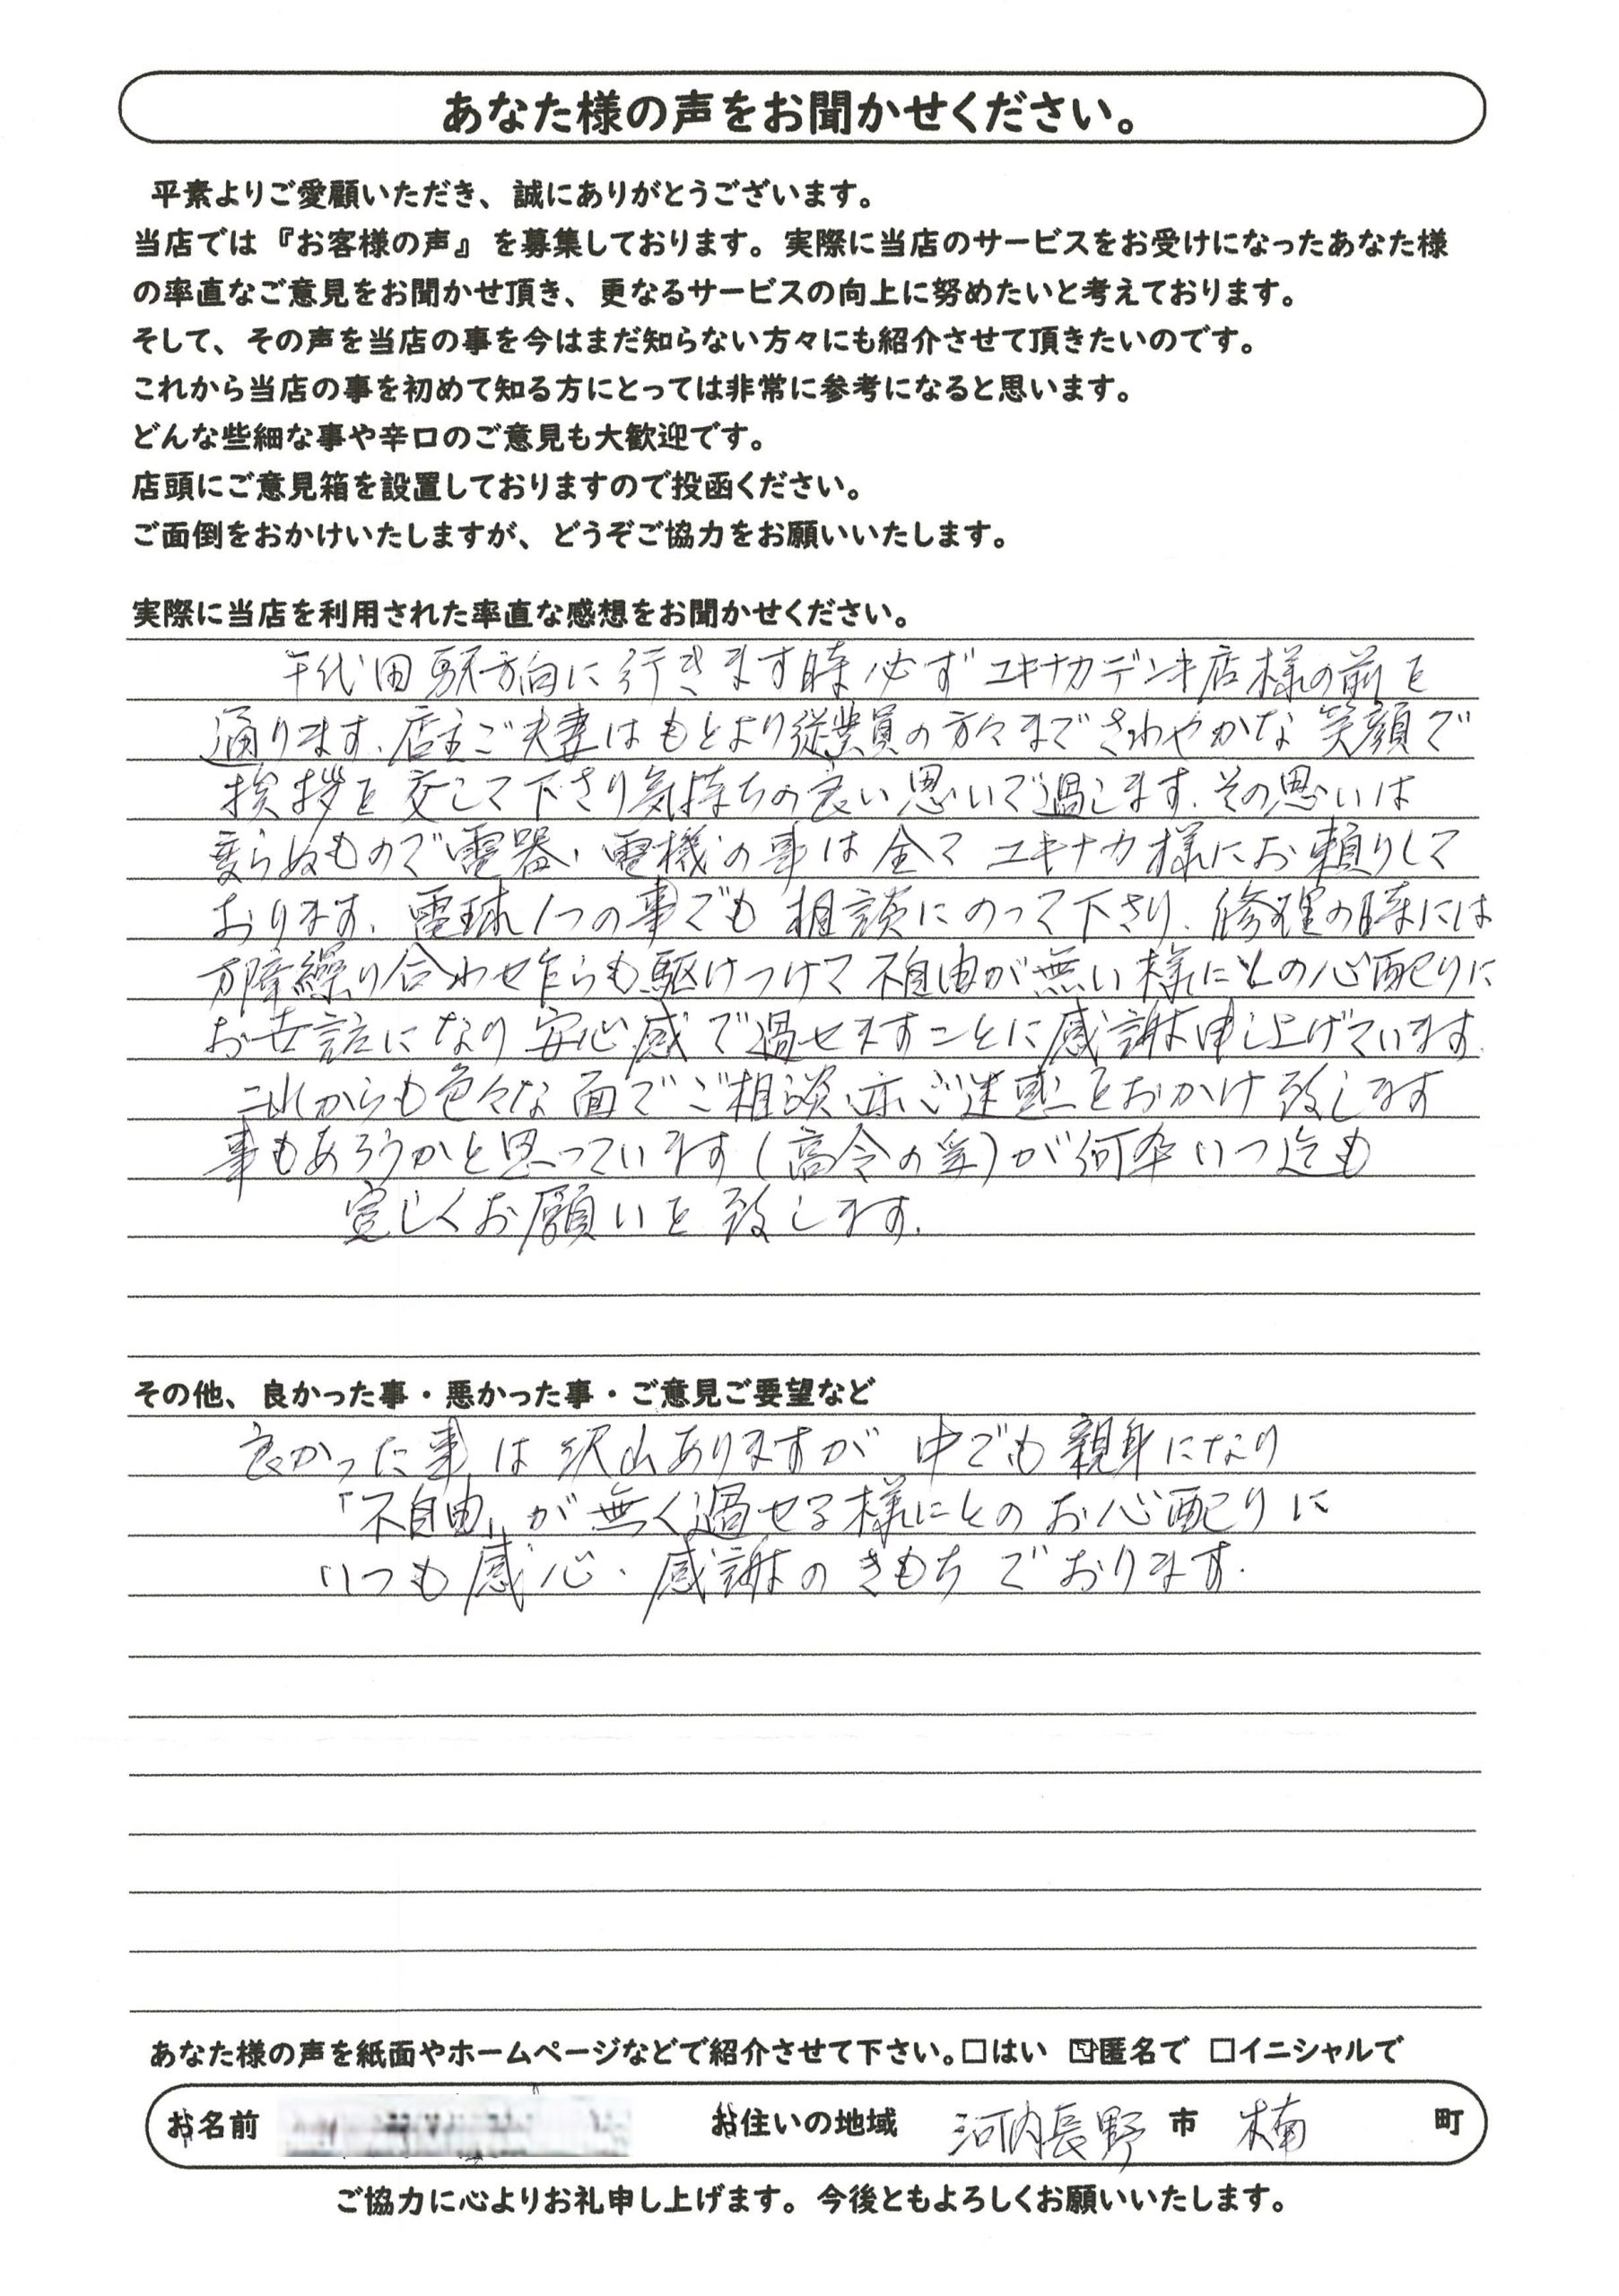 あなた様の声をお聞かせください。
平素よりご愛顧いただき、誠にありがとうございます。
当店では『お客様の声』を募集しております。実際に当店のサービスをお受けになったあなた様
の率直なご意見をお聞かせ頂き、更なるサービスの向上に努めたいと考えております。
そして、その声を当店の事を今はまだ知らない方々にも紹介させて頂きたいのです。
これから当店の事を初めて知る方にとっては非常に参考になると思います。
どんな些細な事や辛口のご意見も大歓迎です。
店頭にご意見箱を設置しておりますので投函ください。
ご面倒をおかけいたしますが、どうぞご協力をお願いいたします。
実際に当店を利用された率直な感想をお聞かせください。
千代田駅方向に行きます時必ずユキナカデンキ店様の前を
通ります.店主ご夫妻はもとより従業員の方々までさわやかな笑顔で
挨拶を交して下さり気持ちの良い思いで過します.その思いは
変らぬもので電器、電機の事は全てユキナカ様にお頼りして
おります.電球1つの事でも相談にのって下さり.修理の時には
万障繰り合わせ乍らも駆けつけて不自由が無い様にとの心配りに
お世話になり安心感で過せますことに感謝申し上げています.
これからも色々な面でご相談、亦ご迷惑をおかけ致します
事もあろうかと思っています(高令の為)が何卒いつ迄も
宜しくお願いを致します.
その他、良かった事・悪かった事・ご意見ご要望など
良かった事は沢山ありますが中でも親身になり
「不自由」が無く過せる様にとのお心配りに
いつも感心・感謝のきもちでおります.
あなた様の声を紙面やホームページなどで紹介させて下さい。□はい ☑匿名で □イニシャルで
お名前 お住いの地域 河内長野 市 楠 町
ご協力に心よりお礼申し上げます。今後ともよろしくお願いいたします。